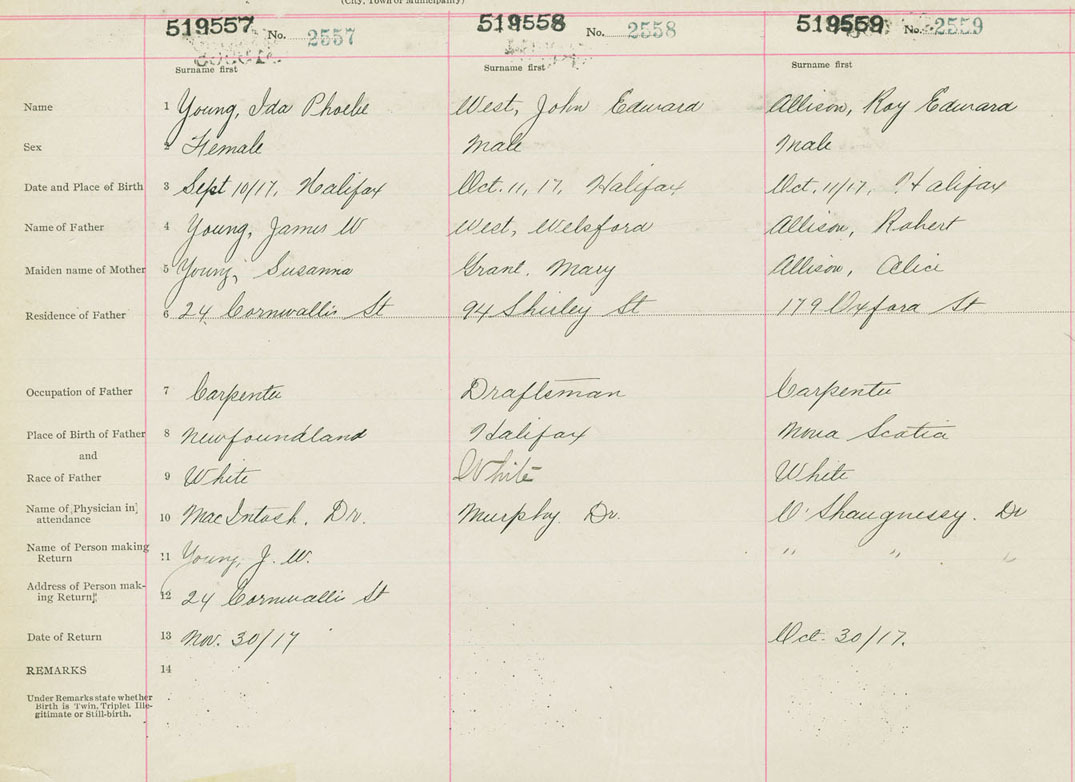 (City, Town or Municipality)
519557 No. 2557 519558 No. 2558 519559 No. 2559
Surname first Surname first Surname first
Name 1 Young, Ida Phoebe West, John Edward Allison, Roy Edward
Sex 2 Female Male Male
Date and Place of Birth 3 Sept 10/17, Halifax Oct. 11, 17, Halifax Oct. 11/17, Halifax
Name of Father 4 Young, James W West, Welsford Allison, Robert
Maiden name of Mother 5 Young, Susanna Grant. Mary Allison, Alice
Residence of Father 6 24 Cornwallis St 94 Shirley St 179 Oxford St
Occupation of Father 7 Carpenter Draftsman Carpenter
Place of Birth of Father 8 Newfoundland Halifax Nova Scotia
and
Race of Father 9 White White White
Name of Physician in
attendance 10 MacIntosh. Dr. Murphy Dr. O'Shaugnessy. Dr
Name of Person making
Return 11 Young, J. W. " " "
Address of Person mak-
ing Return 12 24 Cornwallis St
Date of Return 13 Nov. 30/17 Oct. 30/17.
REMARKS 14
Under Remarks state whether
Birth is Twin, Triplet Ille-
gitimate or Still-birth.